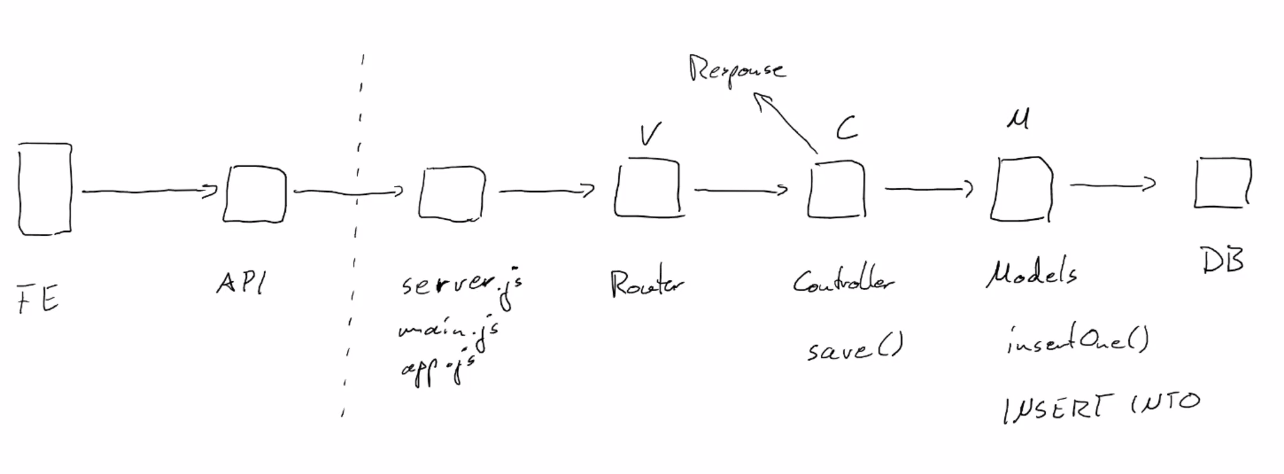 Response
V
C
M
FE
API
server.js
main.js
app.js
Router
Controller
save()
Models
insertOne()
INSERT INTO
DB